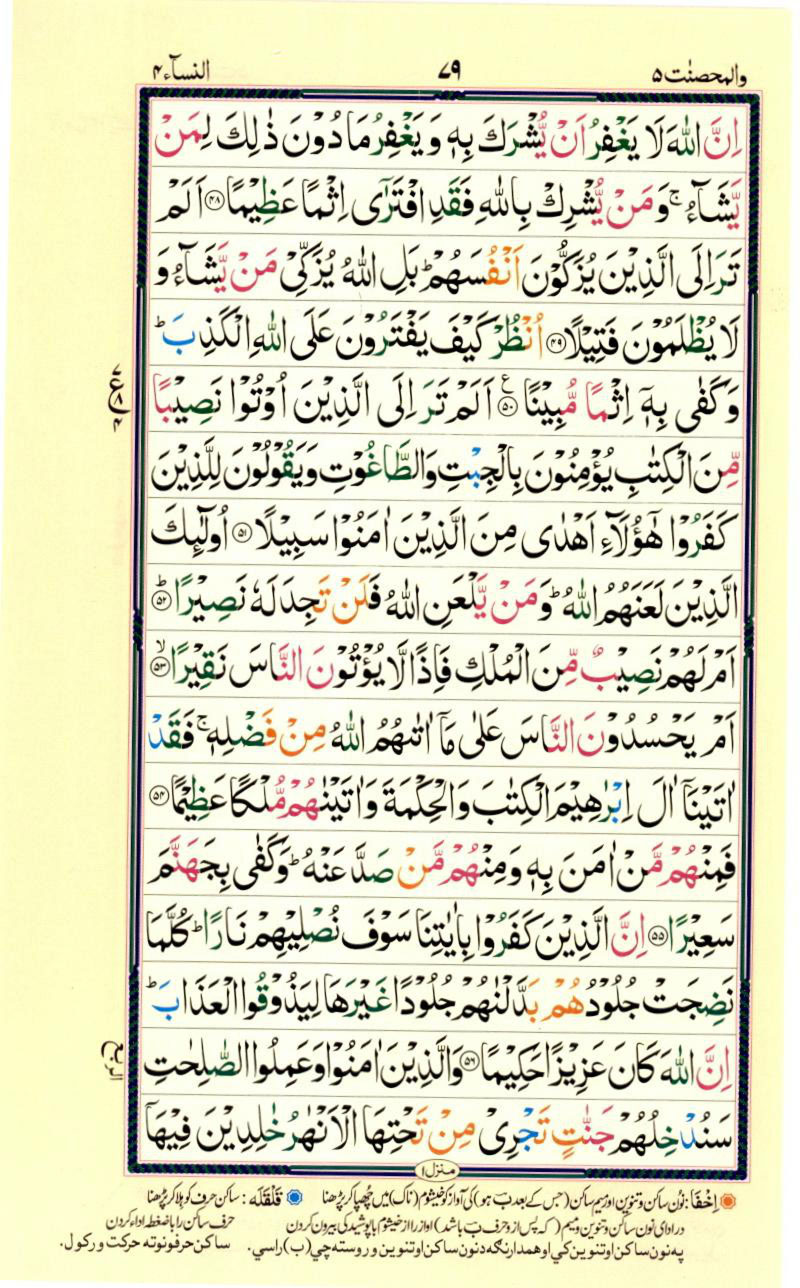 والمحصنٰت ۵ ۷۹ النسآء ۴
اِنَّ اللّٰهَ لَا يَغْفِرُ اَنْ يُّشْرَكَ بِهٖ وَيَغْفِرُ مَا دُوْنَ ذٰلِكَ لِمَنْ
يَّشَآءُ ۚ وَمَنْ يُّشْرِكْ بِاللّٰهِ فَقَدِ افْتَرٰٓى اِثْمًا عَظِيْمًا ۝۴۸ اَلَمْ
تَرَ اِلَى الَّذِيْنَ يُزَكُّوْنَ اَنْفُسَهُمْ ؕ بَلِ اللّٰهُ يُزَكِّيْ مَنْ يَّشَآءُ وَ
لَا يُظْلَمُوْنَ فَتِيْلًا ۝۴۹ اُنْظُرْ كَيْفَ يَفْتَرُوْنَ عَلَى اللّٰهِ الْكَذِبَ ؕ
وَكَفٰى بِهٖٓ اِثْمًا مُّبِيْنًا ۝۵۰ ع اَلَمْ تَرَ اِلَى الَّذِيْنَ اُوْتُوْا نَصِيْبًا
مِّنَ الْكِتٰبِ يُؤْمِنُوْنَ بِالْجِبْتِ وَالطَّاغُوْتِ وَيَقُوْلُوْنَ لِلَّذِيْنَ
كَفَرُوْا هٰٓؤُلَآءِ اَهْدٰى مِنَ الَّذِيْنَ اٰمَنُوْا سَبِيْلًا ۝۵۱ اُولٰٓئِكَ
الَّذِيْنَ لَعَنَهُمُ اللّٰهُ ؕ وَمَنْ يَّلْعَنِ اللّٰهُ فَلَنْ تَجِدَ لَهٗ نَصِيْرًا ؕ ۝۵۲
اَمْ لَهُمْ نَصِيْبٌ مِّنَ الْمُلْكِ فَاِذًا لَّا يُؤْتُوْنَ النَّاسَ نَقِيْرًا ۙ ۝۵۳
اَمْ يَحْسُدُوْنَ النَّاسَ عَلٰى مَآ اٰتٰىهُمُ اللّٰهُ مِنْ فَضْلِهٖ ۚ فَقَدْ
اٰتَيْنَآ اٰلَ اِبْرٰهِيْمَ الْكِتٰبَ وَالْحِكْمَةَ وَاٰتَيْنٰهُمْ مُّلْكًا عَظِيْمًا ۝۵۴
فَمِنْهُمْ مَّنْ اٰمَنَ بِهٖ وَمِنْهُمْ مَّنْ صَدَّ عَنْهُ ؕ وَكَفٰى بِجَهَنَّمَ
سَعِيْرًا ۝۵۵ اِنَّ الَّذِيْنَ كَفَرُوْا بِاٰيٰتِنَا سَوْفَ نُصْلِيْهِمْ نَارًا ؕ كُلَّمَا
نَضِجَتْ جُلُوْدُهُمْ بَدَّلْنٰهُمْ جُلُوْدًا غَيْرَهَا لِيَذُوْقُوا الْعَذَابَ ؕ
اِنَّ اللّٰهَ كَانَ عَزِيْزًا حَكِيْمًا ۝۵۶ وَالَّذِيْنَ اٰمَنُوْا وَعَمِلُوا الصّٰلِحٰتِ
سَنُدْخِلُهُمْ جَنّٰتٍ تَجْرِيْ مِنْ تَحْتِهَا الْاَنْهٰرُ خٰلِدِيْنَ فِيْهَآ
ع ۸ ۴
الربع
منزل ۱
اِخْفَا: نون ساکن و تنوین اور میم ساکن (جس کے بعد بَ ہو) کی آواز کو خیشوم (ناک) میں چھپا کر پڑھنا قَلْقَلَه: ساکن حرف کو ہلا کر پڑھنا
در ادای نون ساکن و تنوین و میم (که پس از و حرف بَ باشد) آواز را از خیشوم با پوشیدگی بیرون کردن حرف ساکن را با ضغطه اداء کردن
په نون ساکن او تنوین کي او همدارنګه د نون ساکن او تنوین وروسته چي (ب) راسي. ساکن حرفونو ته حرکت ورکول.